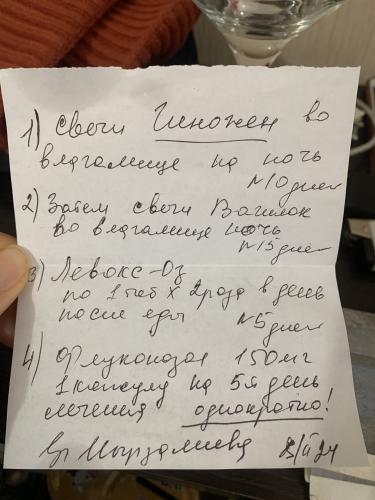 1) Свечи Гиножен во
влагалище на ночь
N10 дней
2) Затем свечи Вагилак
во влагалище ночь
N15 дней
3) Левокс-Oz
по 1 таб х 2 раза в день
после еды N5 дней
4) Флуконазол 150 мг
1 капсулу на 5й день
лечения однократно!
Вр